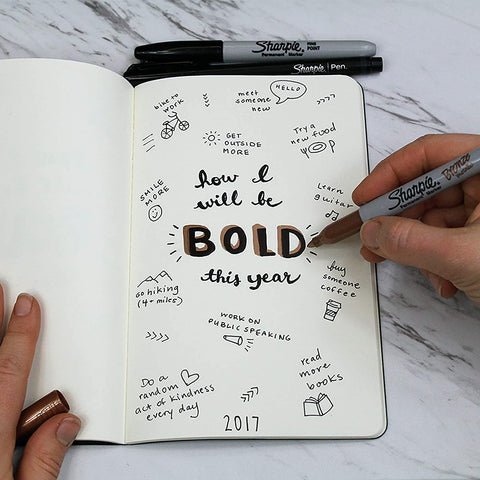 Sharpie FINE POINT
Permanent Marker
Sharpie Pen.
HELLO
bike to
work
meet
someone
new
GET
OUTSIDE
MORE
Try a
new food
how I
will be
BOLD
this year
SMILE
MORE
Learn
guitar
Sharpie Bronze
GO hiking
(4+ miles)
buy
someone
coffee
WORK ON
PUBLIC SPEAKING
Do a
random
act of kindness
every day
read
more
books
2017